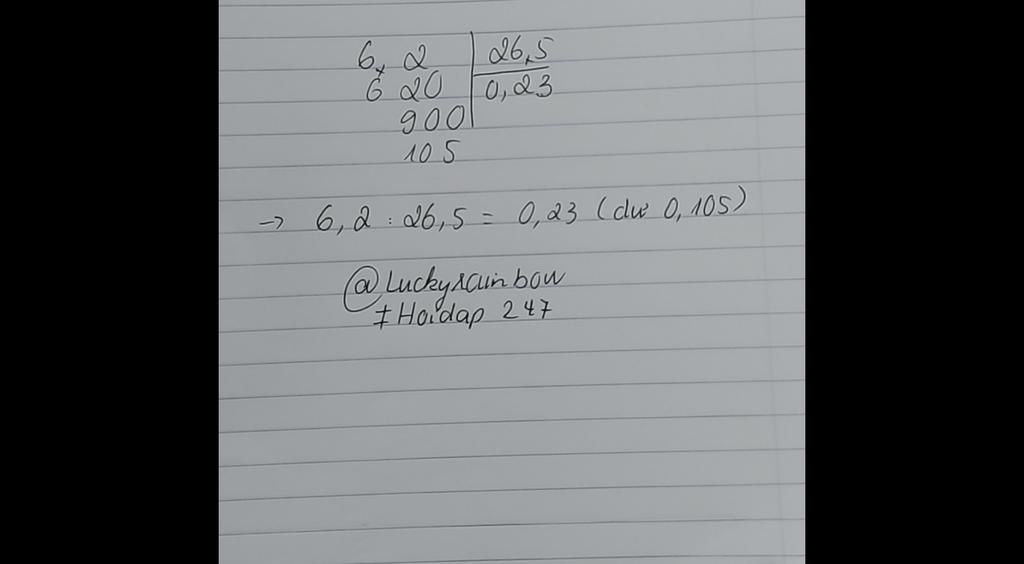 6, 2 26,5
6 20 0,23
900
105
→ 6,2 : 26,5 = 0,23 (dư 0,105)
@Luckyrainbow
#Hoidap 247